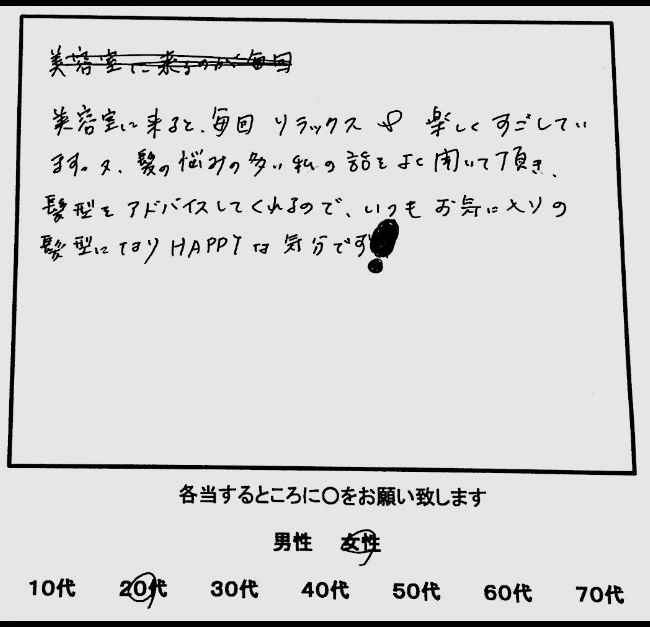 美容室に来るのが毎回
美容室に来ると、毎回 リラックス & 楽しくすごしてい
ます。又、髪の悩みの多い私の話をよく聞いて頂き、
髪型をアドバイスしてくれるので、いつもお気に入りの
髪型になりHAPPYな気分です!
各当するところに〇をお願い致します
男性 女性
10代 20代 30代 40代 50代 60代 70代